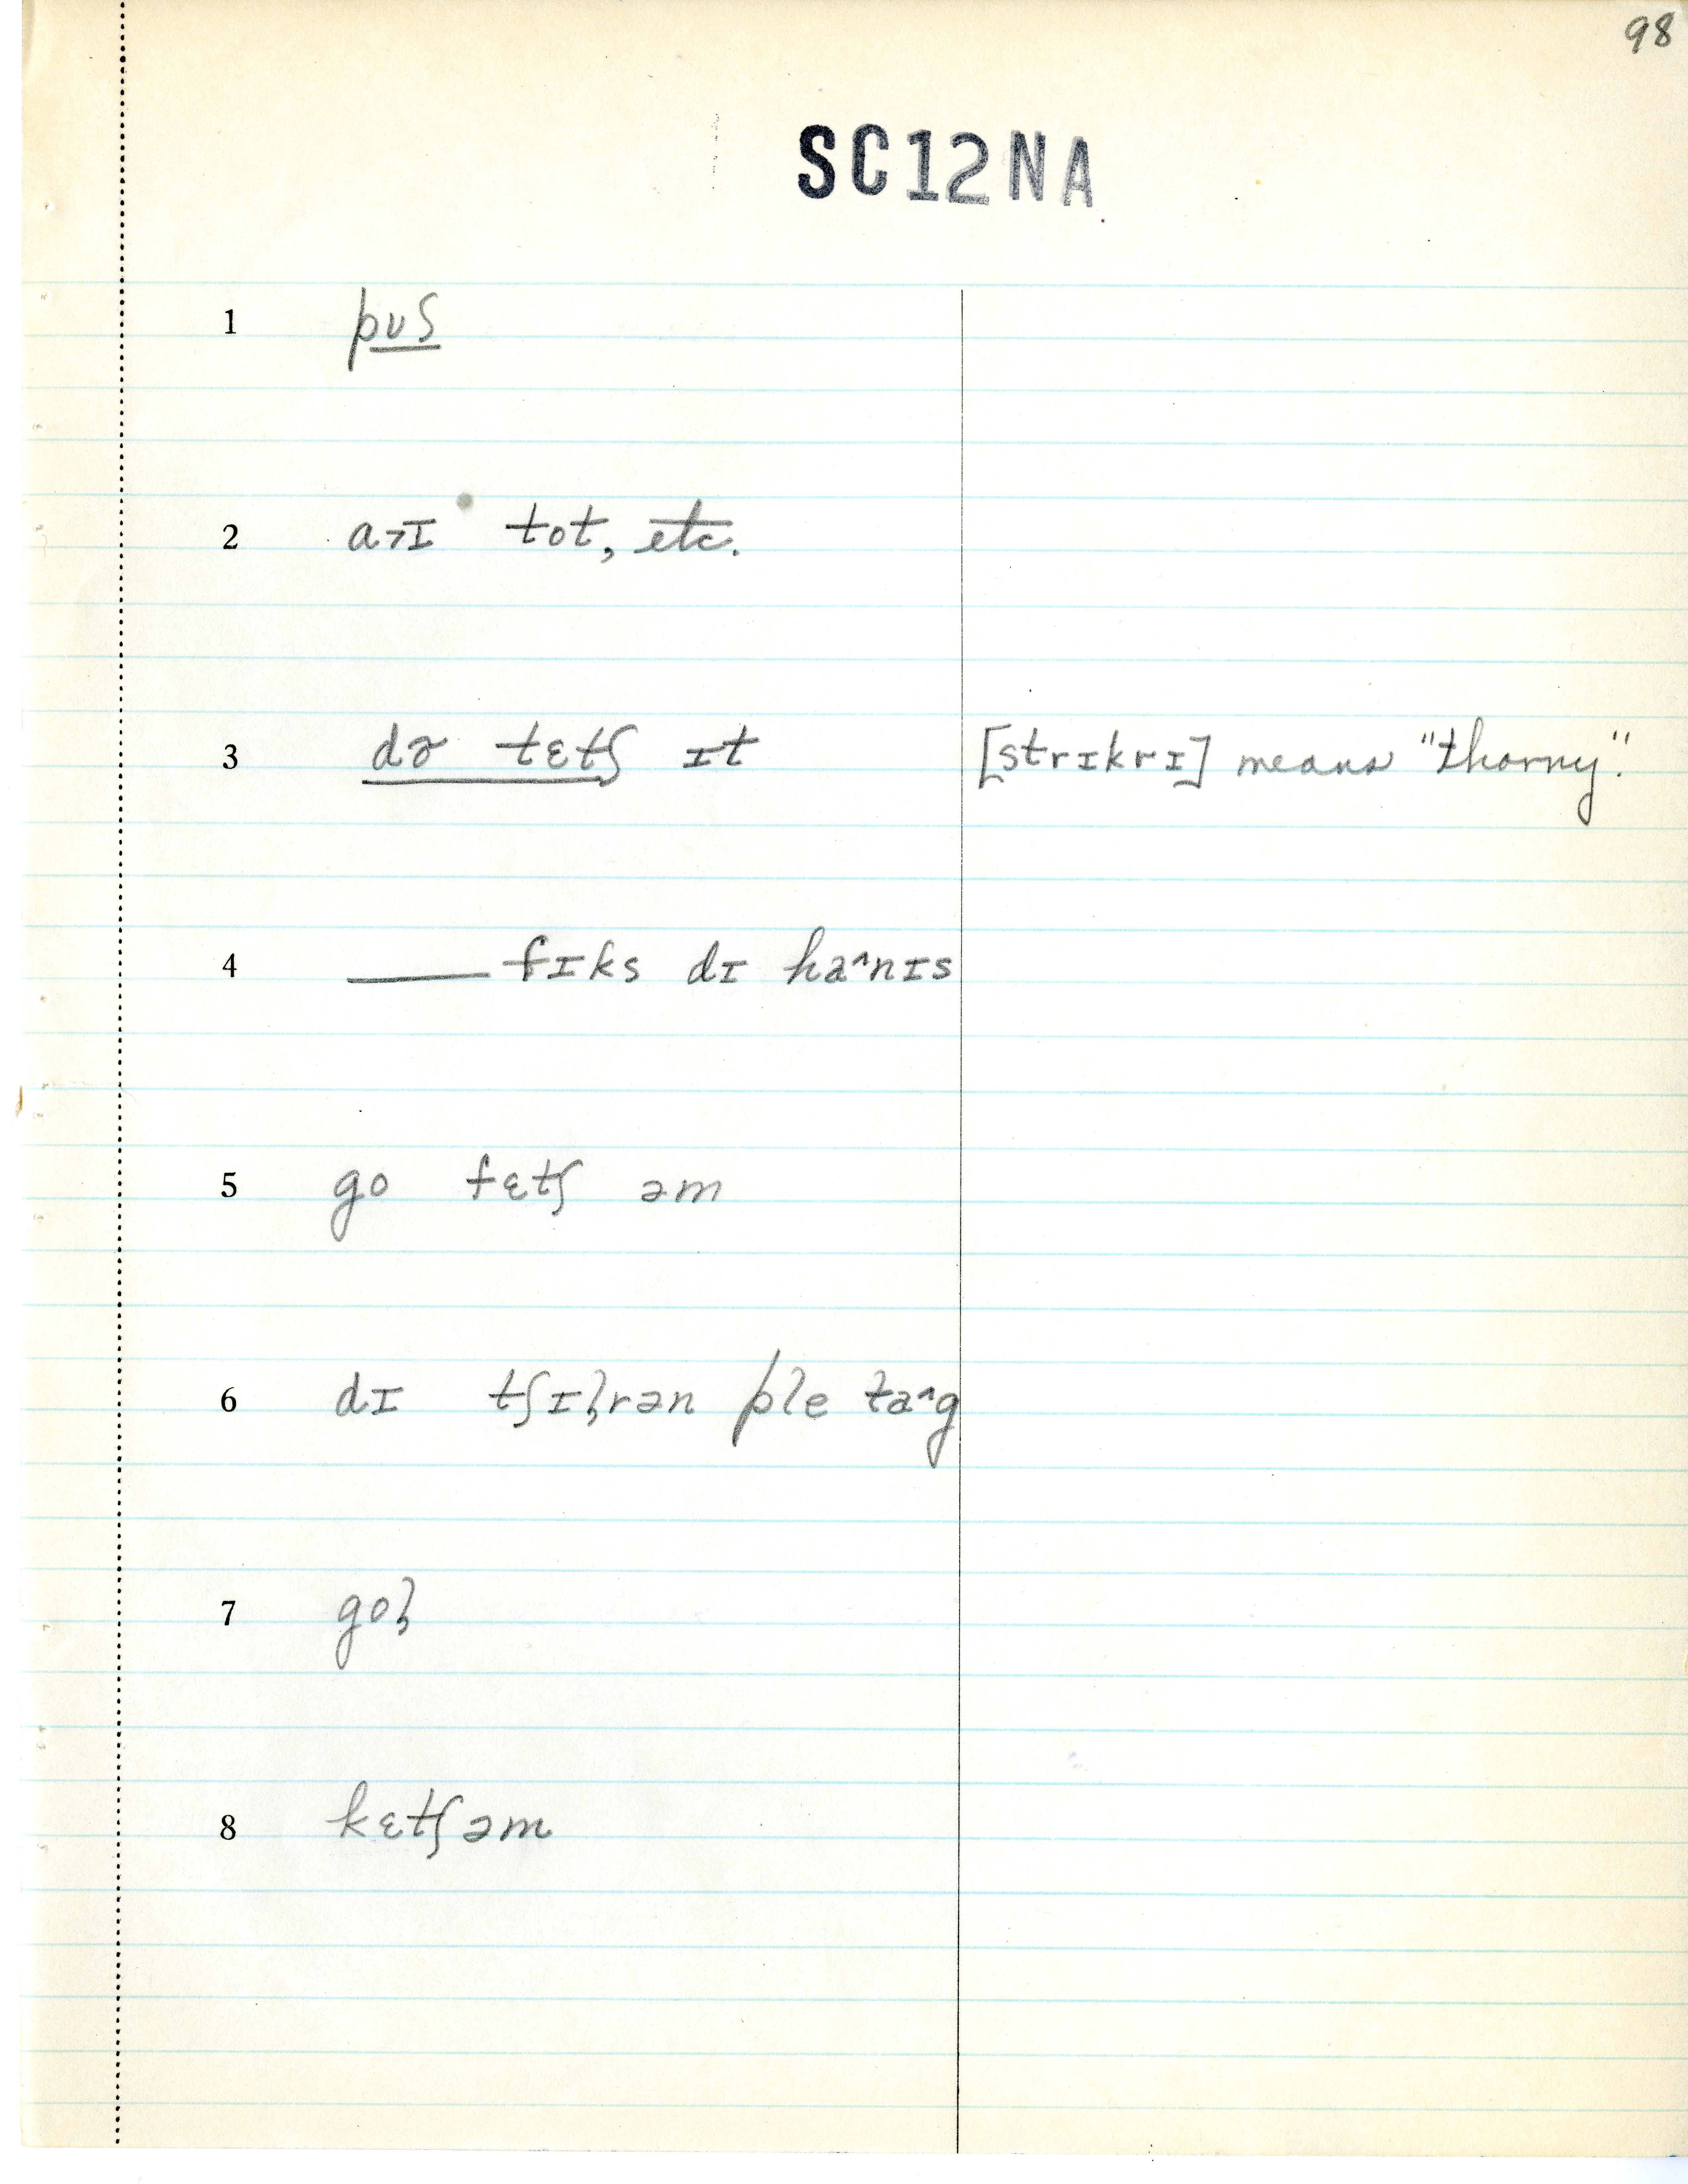 98
SC12NA
1 pʊʃ
2 a˃ɪ tot, etc.
3 də tɛtʃ ɪt [strɪkrɪ] means "thorny".
4 ____ fɪks dɪ ha^nɪs
5 go fɛtʃ əm
6 dɪ tʃɪl̥rən ple ta^g
7 gol̥
8 kɛtʃ əm